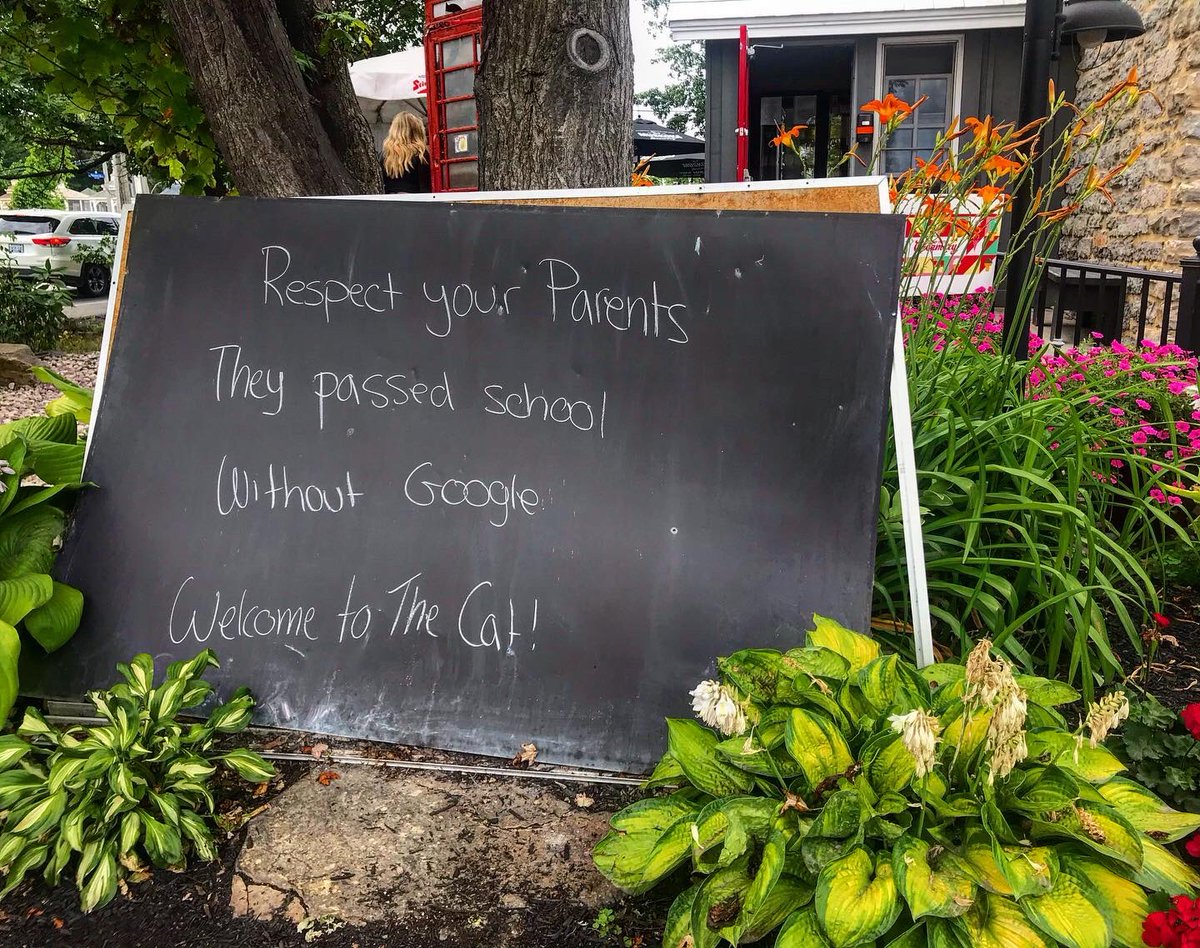 Respect your Parents
They passed school
Without Google
Welcome to The Cat!